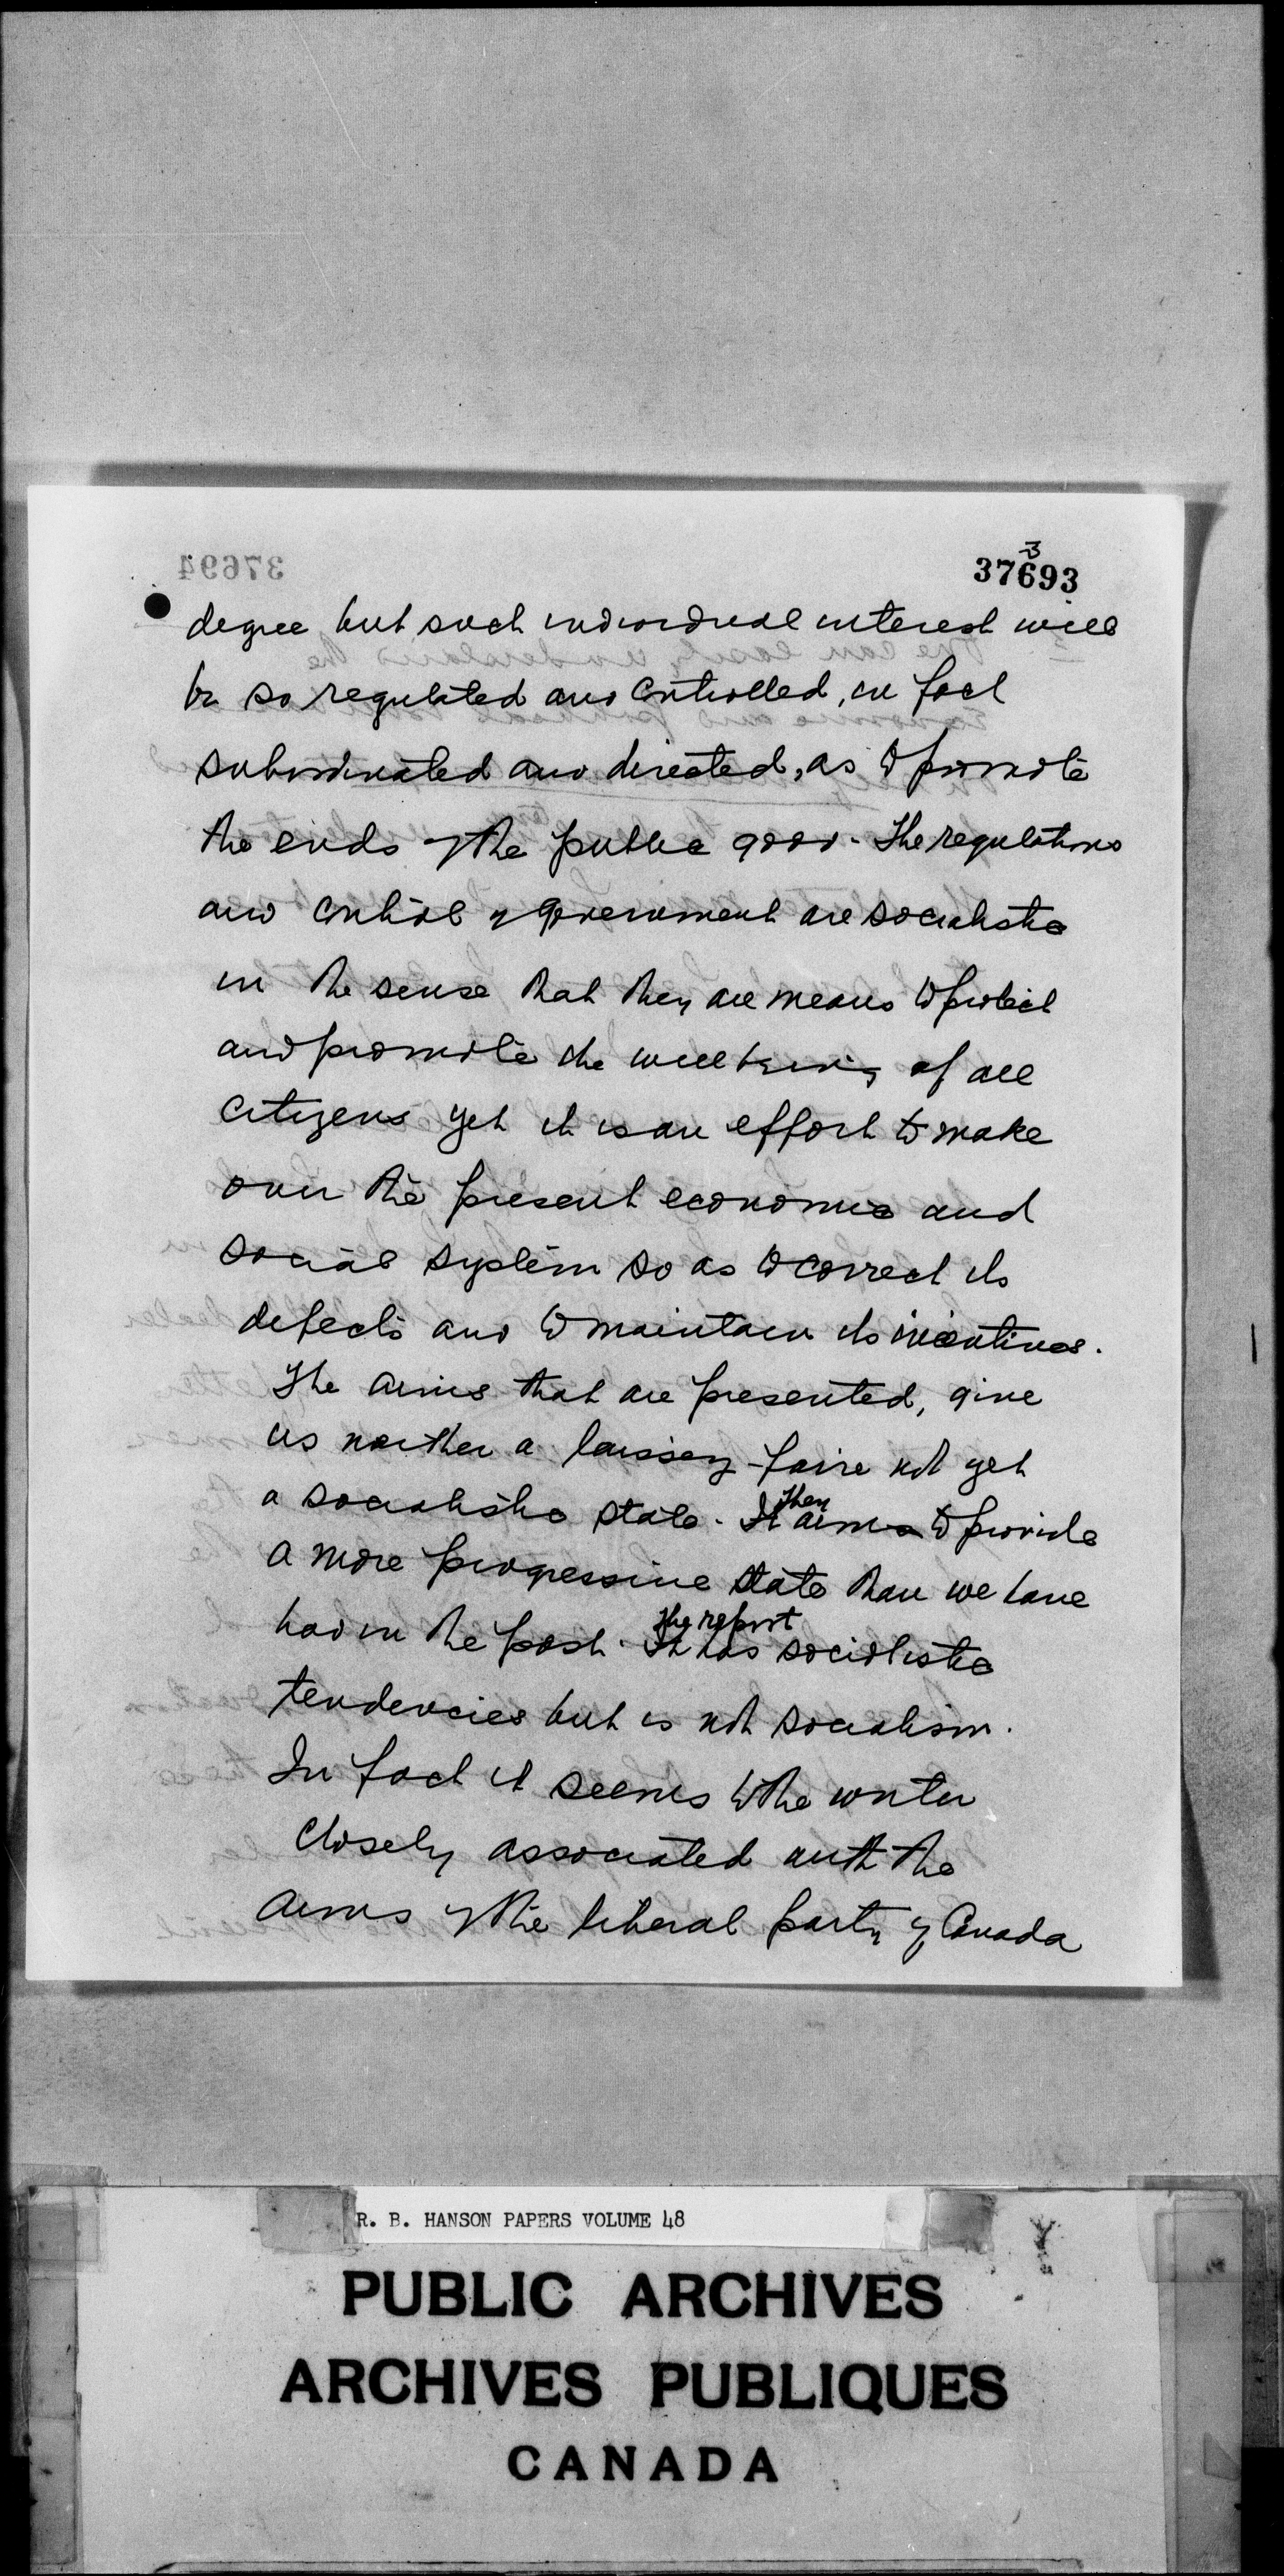 3
37693
37694
degree but such individual interest will
be so regulated and controlled, in fact
subordinated and directed, as to promote
the ends of the public good. The regulations
and control of Government are socialistic
in the sense that they are means to protect
and promote the well being of all
citizens yet it is an effort to make
over the present economic and
social system so as to correct its
defects and to maintain its incentives.
The aims that are presented, give
us neither a laissez-faire not yet
a socialistic state. It They aims to provide
a more progressive state than we have
had in the past. It The report has socialistic
tendencies but is not socialism.
In fact it seems to the writer
closely associated with the
aims of the liberal party of Canada
R. B. HANSON PAPERS VOLUME 48
PUBLIC ARCHIVES
ARCHIVES PUBLIQUES
CANADA